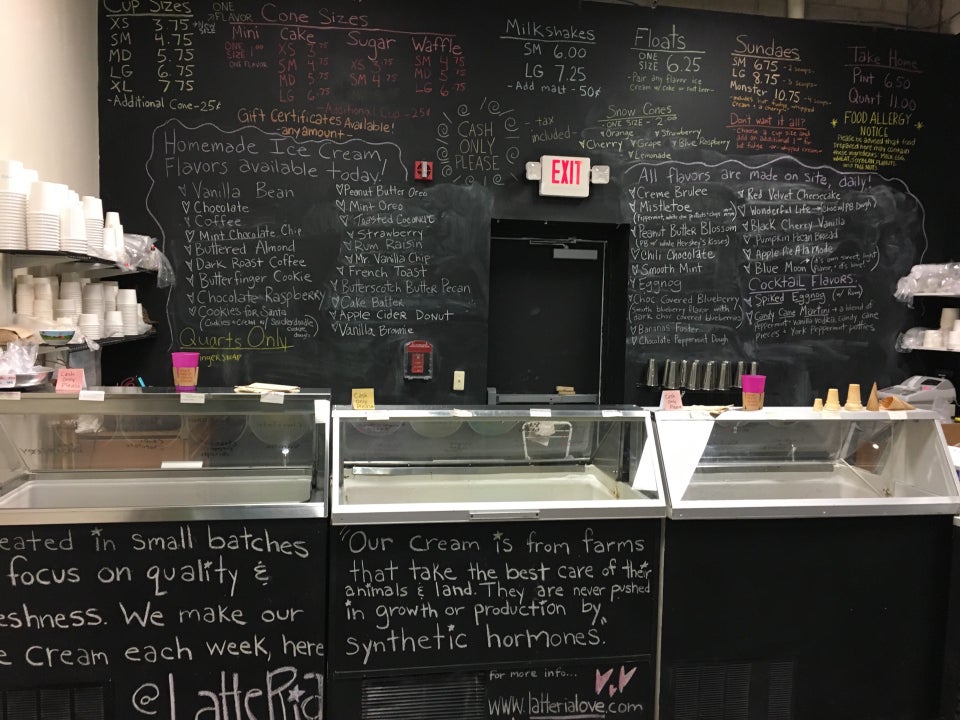 Cup Sizes
XS 3.75
SM 4.75
MD 5.75
LG 6.75
XL 7.75
-Additional Cone-25¢
ONE
FLAVOR
Cone Sizes
Mini
ONE
SIZE
ONE FLAVOR
Cake
XS
SM
MD
LG
Sugar
XS
SM 4.75
Waffle
SM 4.75
MD 5.75
LG 6.75
-Additional Cone-25¢
Gift Certificates Available!
-any amount-
CASH
ONLY
PLEASE
- tax
included-
Milkshakes
SM 6.00
LG 7.25
-Add malt-50¢
Floats
ONE
SIZE 6.25
-Pair any flavor ice
Cream w/
Snow Cones
-ONE SIZE-
Orange
Strawberry
Cherry
Grape
Blue Raspberry
Lemonade
Sundaes
SM 6.75
LG 8.75
Monster 10.75
Don't want it all?
Choose a cup size and
add an additional
hot fudge
Take Home
Pint 6.50
Quart 11.00
FOOD ALLERGY
NOTICE
Please be advised that food
prepared here may contain
these ingredients: Milk, Egg,
wheat,
Homemade Ice Cream
Flavors available Today!
Vanilla Bean
Chocolate
Coffee
Mint Chocolate Chip
Buttered Almond
Dark Roast Coffee
Butterfinger Cookie
Chocolate Raspberry
Cookies for Santa
(Cookies + Cream w/ Snickerdoodle
Cookie
Quarts Only
Gingersnap
Peanut Butter Oreo
Mint Oreo
Toasted Coconut
Strawberry
Rum Raisin
Mr. Vanilla Chip
French Toast
Butterscotch Butter Pecan
Cake Batter
Apple Cider Donut
Vanilla Brownie
EXIT
All flavors are made on site, daily!
Creme Brulee
Mistletoe
Peanut Butter Blossom
(PB w/ white Hershey's Kisses)
Chili Chocolate
Smooth Mint
Eggnog
Choc Covered Blueberry
(Smooth blueberry flavor with
dark choc covered blueberries)
Bananas Foster
Chocolate Peppermint Dough
Red Velvet Cheesecake
Wonderful Life
Black Cherry Vanilla
Pumpkin Pecan Bread
Apple Pie A la Mode
Blue Moon
Cocktail Flavors
Spiked Eggnog (w/ Rum)
Candy Cane Martini → a blend of
Peppermint, vanilla vodka, candy cane
pieces + York Peppermint patties
Cash
Only
Please
Cash
Only
Please
Cash
Only
Please
eated in small batches
focus on quality &
eshness. We make our
e cream each week, here
@LatteRia
"Our cream is from farms
that take the best care of their
animals & land. They are never pushed
in growth or production by
synthetic hormones."
for more info...
www.latterialove.com